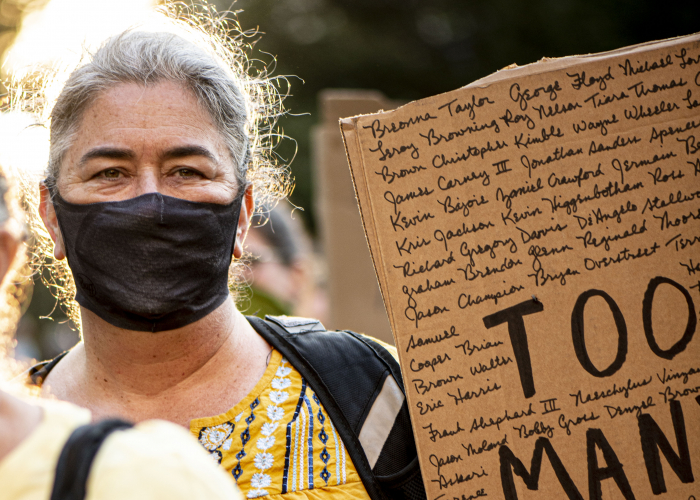 Breonna Taylor George Floyd Michael Lor
Leroy Browning Roy Nelson Tiara Thomas
Brown Christopher Kimble Wayne Wheeler
James Carney III Jonathan Sanders Spencer
Kevin Bajoie Daniel Crawford Jerman
Kris Jackson Kevin Higgenbotham Ross
Richard Gregory Davis DeAngelo Stallus
Graham Brendon Glenn Reginald Moor
Jason Champion Bryan Overstreet
Samuel
Cooper Brian
Brown Walter
Eric Harris
TOO
Frank Shephard III Naeschylus Vinza
Jason Moland Bobby Gross Denzel Brown
Askari
MAN